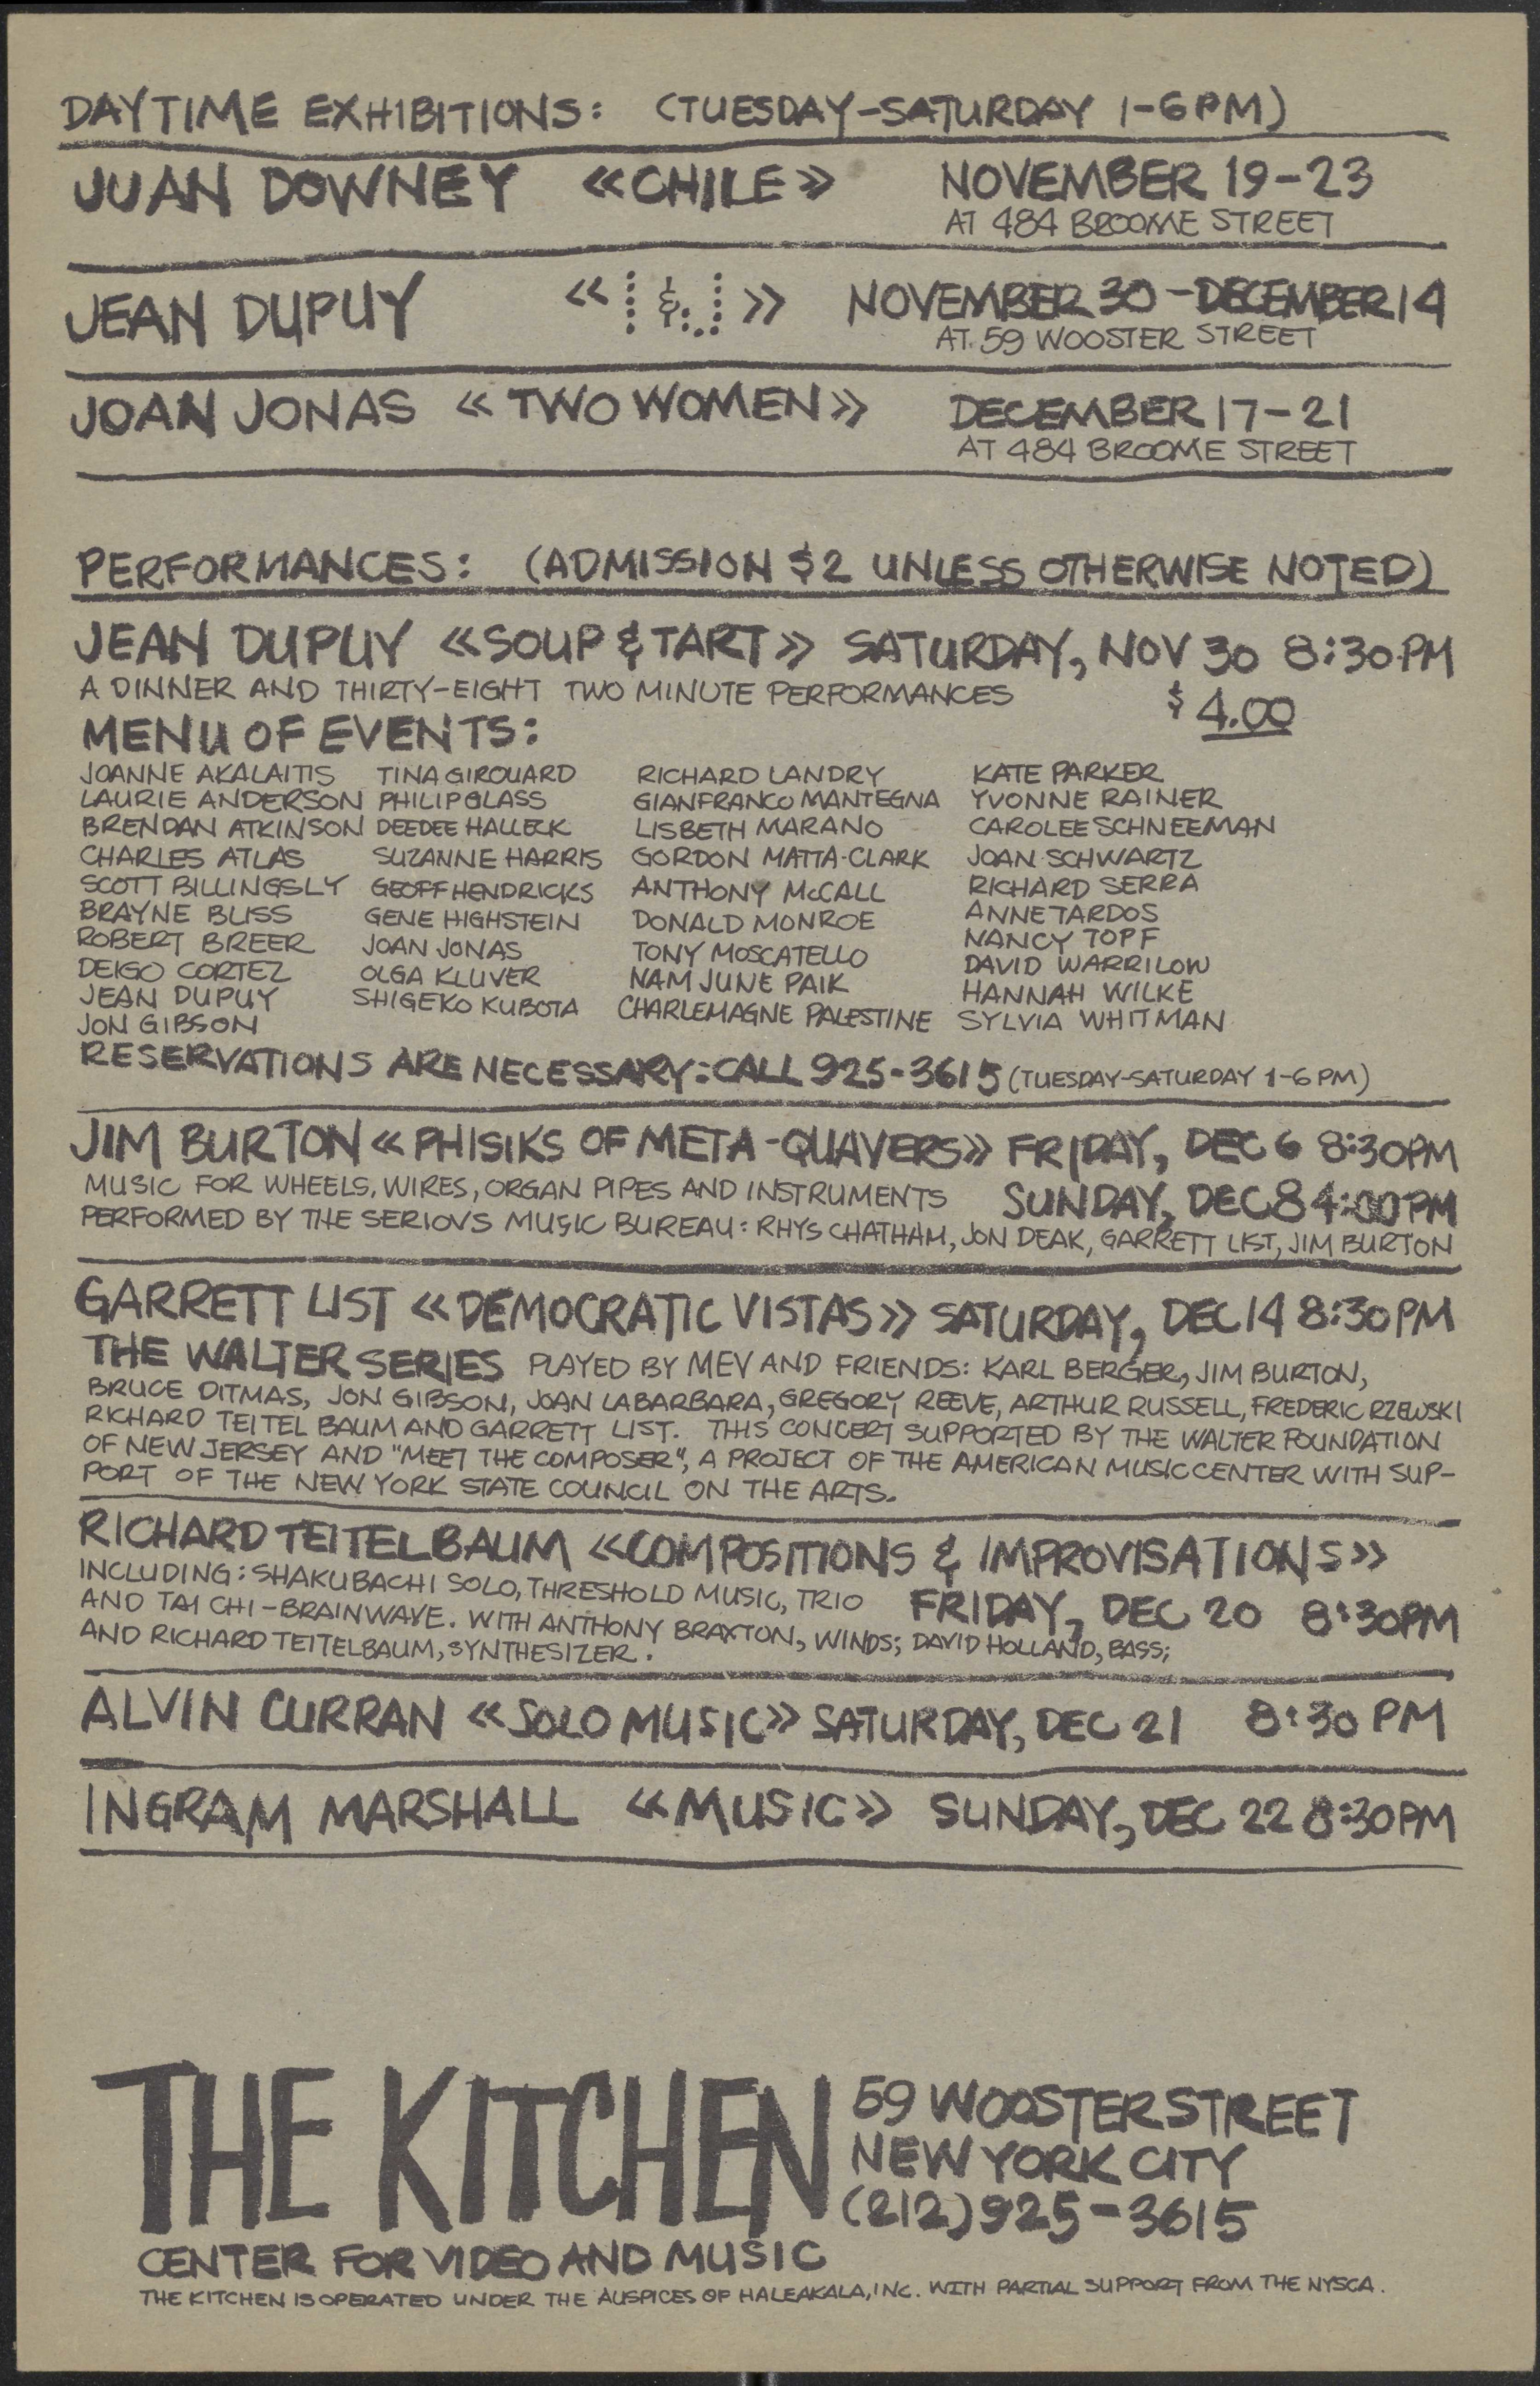 DAYTIME EXHIBITIONS: (TUESDAY-SATURDAY 1-6PM)
JUAN DOWNEY «CHILE» NOVEMBER 19-23
AT 484 BROOME STREET
JEAN DUPUY « & » NOVEMBER 30-DECEMBER 14
AT 59 WOOSTER STREET
JOAN JONAS «TWO WOMEN» DECEMBER 17-21
AT 484 BROOME STREET
PERFORMANCES: (ADMISSION $2 UNLESS OTHERWISE NOTED)
JEAN DUPUY «SOUP & TART» SATURDAY, NOV 30 8:30PM
A DINNER AND THIRTY-EIGHT TWO MINUTE PERFORMANCES $4.00
MENU OF EVENTS:
JOANNE AKALAITIS TINA GIROUARD RICHARD LANDRY KATE PARKER
LAURIE ANDERSON PHILIP GLASS GIANFRANCO MANTEGNA YVONNE RAINER
BRENDAN ATKINSON DEEDEE HALLECK LISBETH MARANO CAROLEE SCHNEEMAN
CHARLES ATLAS SUZANNE HARRIS GORDON MATTA-CLARK JOAN SCHWARTZ
SCOTT BILLINGSLY GEOFF HENDRICKS ANTHONY McCALL RICHARD SERRA
BRAYNE BLISS GENE HIGHSTEIN DONALD MONROE ANNE TARDOS
ROBERT BREER JOAN JONAS TONY MOSCATELLO NANCY TOPF
DEIGO CORTEZ OLGA KLUVER NAM JUNE PAIK DAVID WARRILOW
JEAN DUPUY SHIGEKO KUBOTA CHARLEMAGNE PALESTINE HANNAH WILKE
JON GIBSON SYLVIA WHITMAN
RESERVATIONS ARE NECESSARY: CALL 925-3615 (TUESDAY-SATURDAY 1-6 PM)
JIM BURTON «PHISIKS OF META-QUAVERS» FRIDAY, DEC 6 8:30PM
MUSIC FOR WHEELS, WIRES, ORGAN PIPES AND INSTRUMENTS SUNDAY, DEC 8 4:00PM
PERFORMED BY THE SERIOVS MUSIC BUREAU: RHYS CHATHAM, JON DEAK, GARRETT LIST, JIM BURTON
GARRETT LIST «DEMOCRATIC VISTAS» SATURDAY, DEC 14 8:30PM
THE WALTER SERIES PLAYED BY MEV AND FRIENDS: KARL BERGER, JIM BURTON,
BRUCE DITMAS, JON GIBSON, JOAN LABARBARA, GREGORY REEVE, ARTHUR RUSSELL, FREDERIC RZEWSKI
RICHARD TEITEL BAUM AND GARRETT LIST. THIS CONCERT SUPPORTED BY THE WALTER FOUNDATION
OF NEW JERSEY AND "MEET THE COMPOSER", A PROJECT OF THE AMERICAN MUSIC CENTER WITH SUP-
PORT OF THE NEW YORK STATE COUNCIL ON THE ARTS.
RICHARD TEITELBAUM «COMPOSITIONS & IMPROVISATIONS»
INCLUDING: SHAKUBACHI SOLO, THRESHOLD MUSIC, TRIO FRIDAY, DEC 20 8:30PM
AND TAI CHI-BRAINWAVE. WITH ANTHONY BRAXTON, WINDS; DAVID HOLLAND, BASS;
AND RICHARD TEITELBAUM, SYNTHESIZER.
ALVIN CURRAN «SOLO MUSIC» SATURDAY, DEC 21 8:30 PM
INGRAM MARSHALL «MUSIC» SUNDAY, DEC 22 8:30PM
THE KITCHEN
59 WOOSTER STREET
NEW YORK CITY
(212) 925-3615
CENTER FOR VIDEO AND MUSIC
THE KITCHEN IS OPERATED UNDER THE AUSPICES OF HALEAKALA, INC. WITH PARTIAL SUPPORT FROM THE NYSCA.